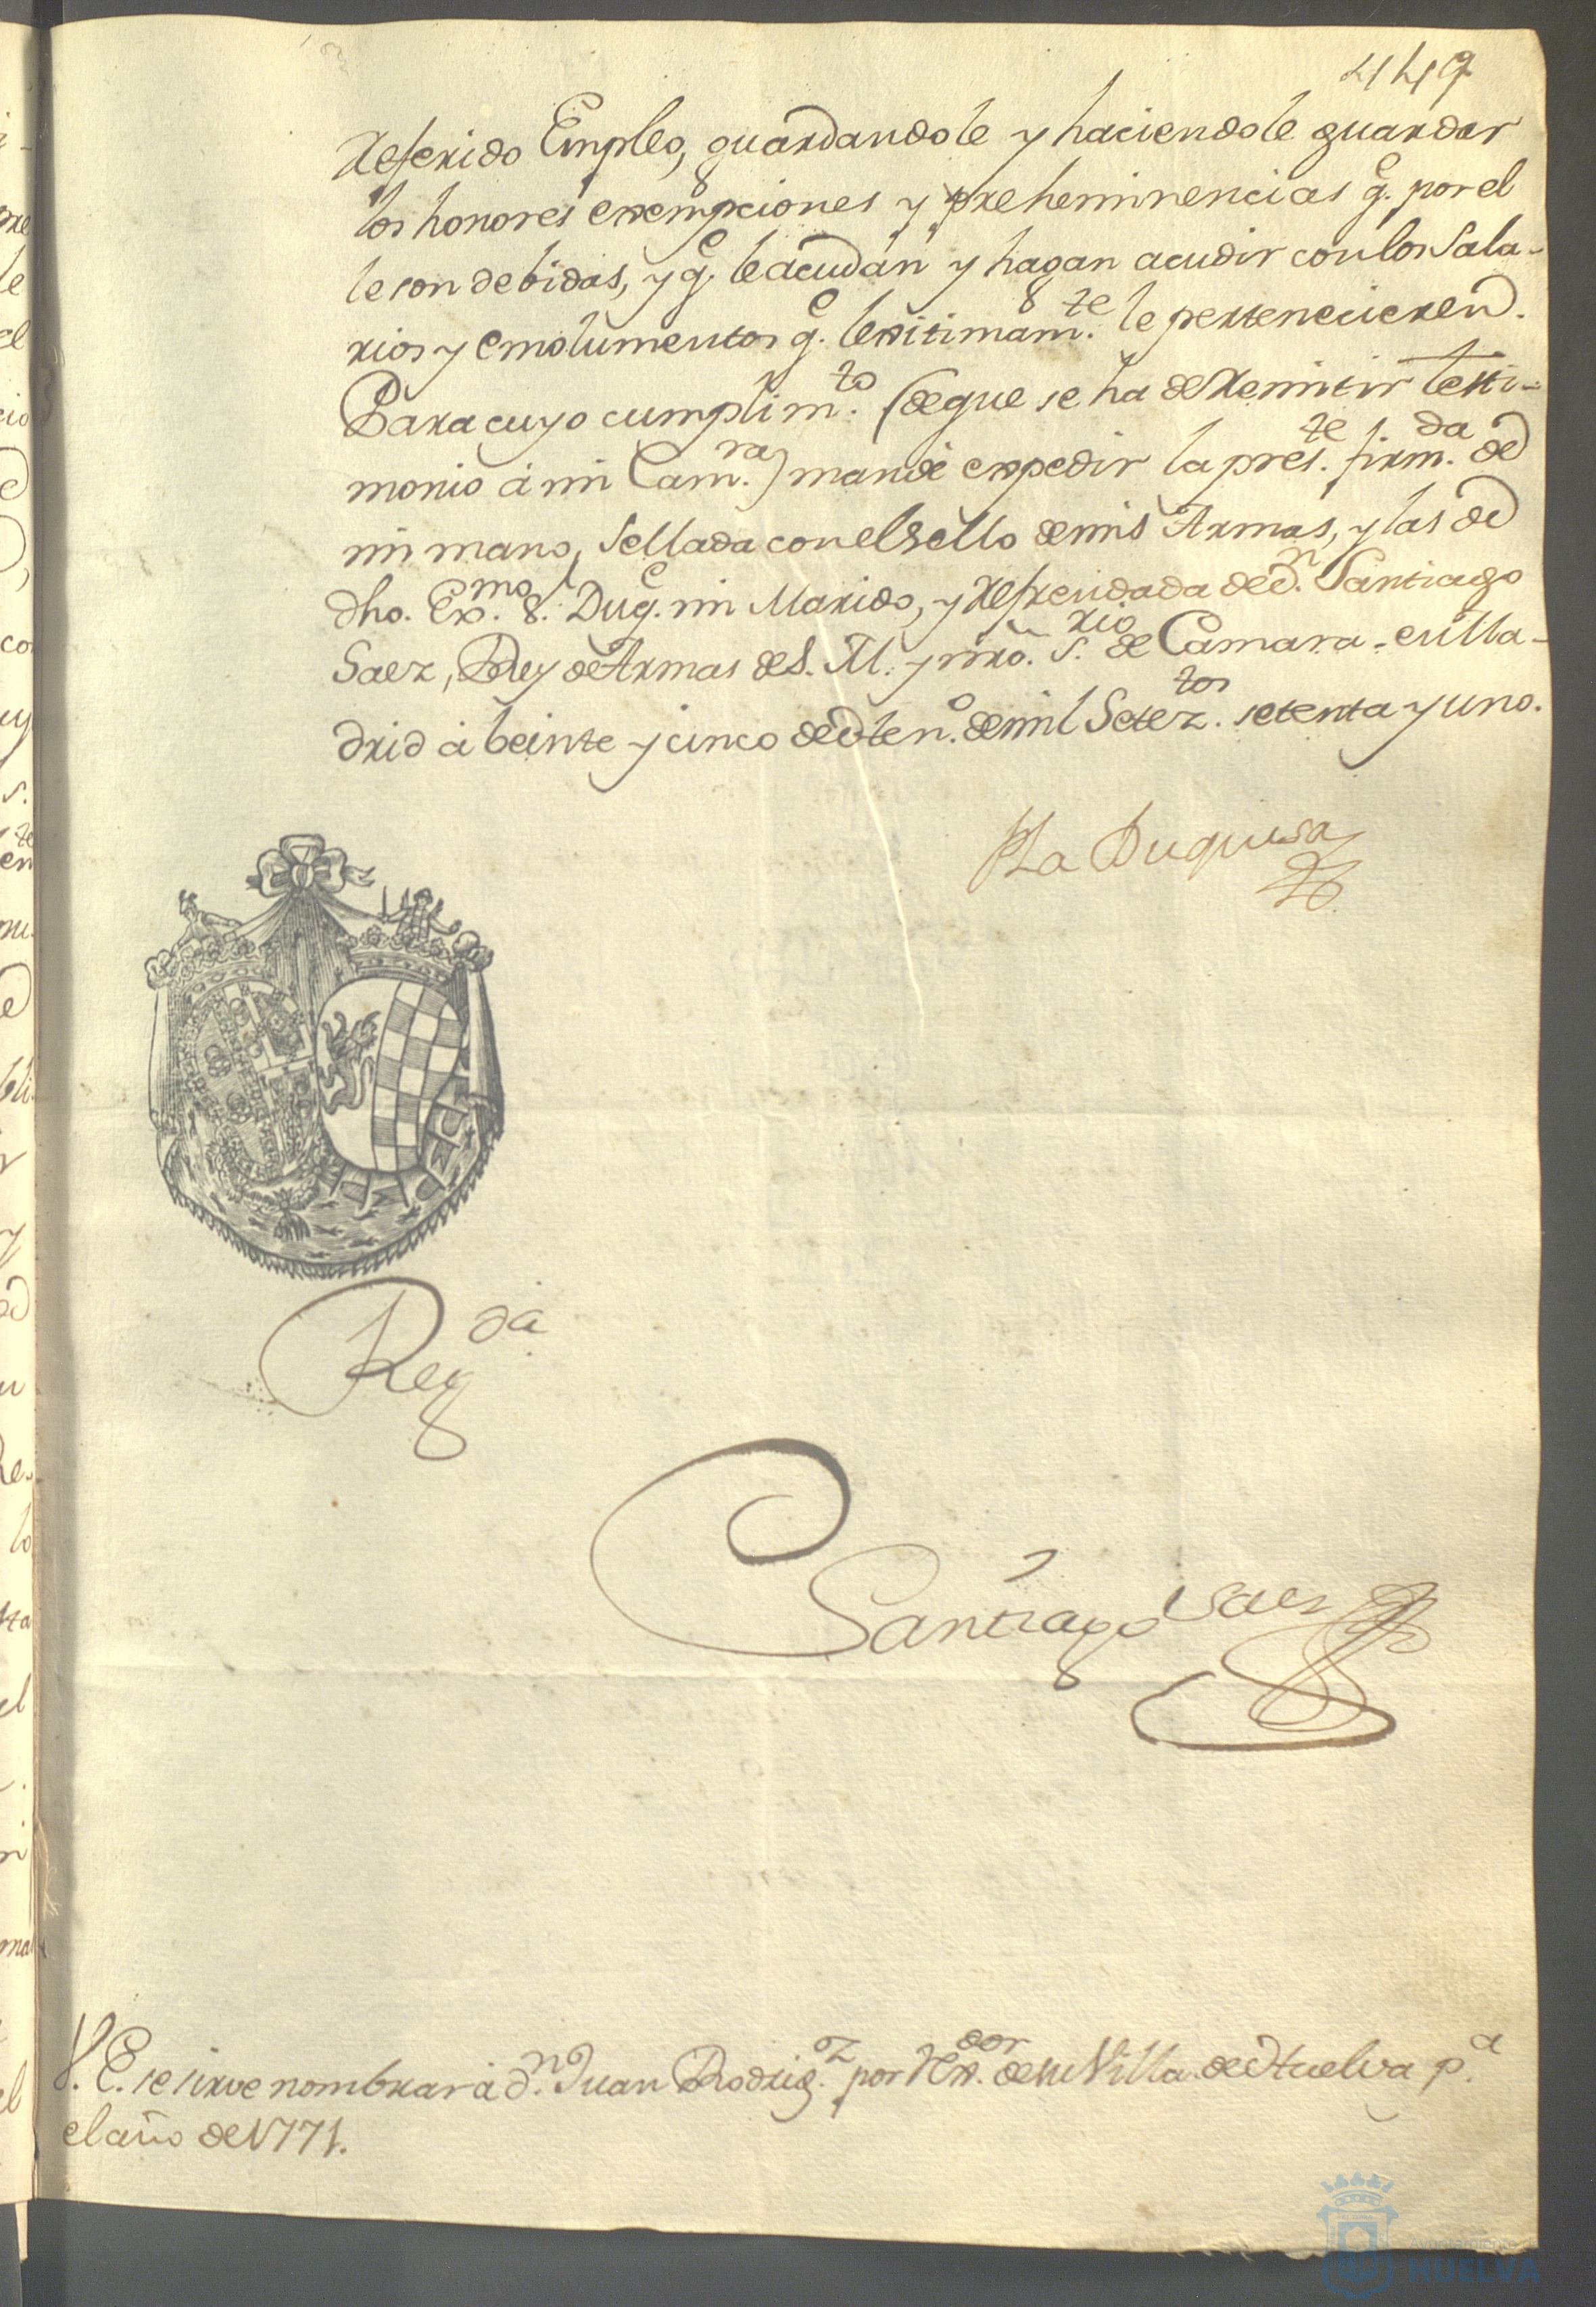 449
referido Empleo, guardandole y haciendole guardar
los honores exempciones y preheminencias q.e por el
le son debidas, y q.e le acudan y hagan acudir con los Sala-
rios y emolumentos q.e lexitimam.te le pertenecieren.
Para cuyo cumplim.to (de que se ha de remitir testi-
monio á mi Cam.ra) mandé expedir la pres.te firm.da de
mi mano, sellada con el Sello de mis Armas, y las de
dho. Ex.mo S. Duq.e mi Marido, y refrendada de d.n Santiago
Saez, Rey de Armas de S. M. y nrõ. S.rio de Camara. en Ma-
drid á beinte y cinco de
de mil Setez.tos setenta y uno.
La Duquesa
Reg.da
Santiago Saez
V. E. se sirve nombrar á d.n Juan Rodrig.z por
de su Villa de Huelva p.a
el año de 1771.
HUELVA